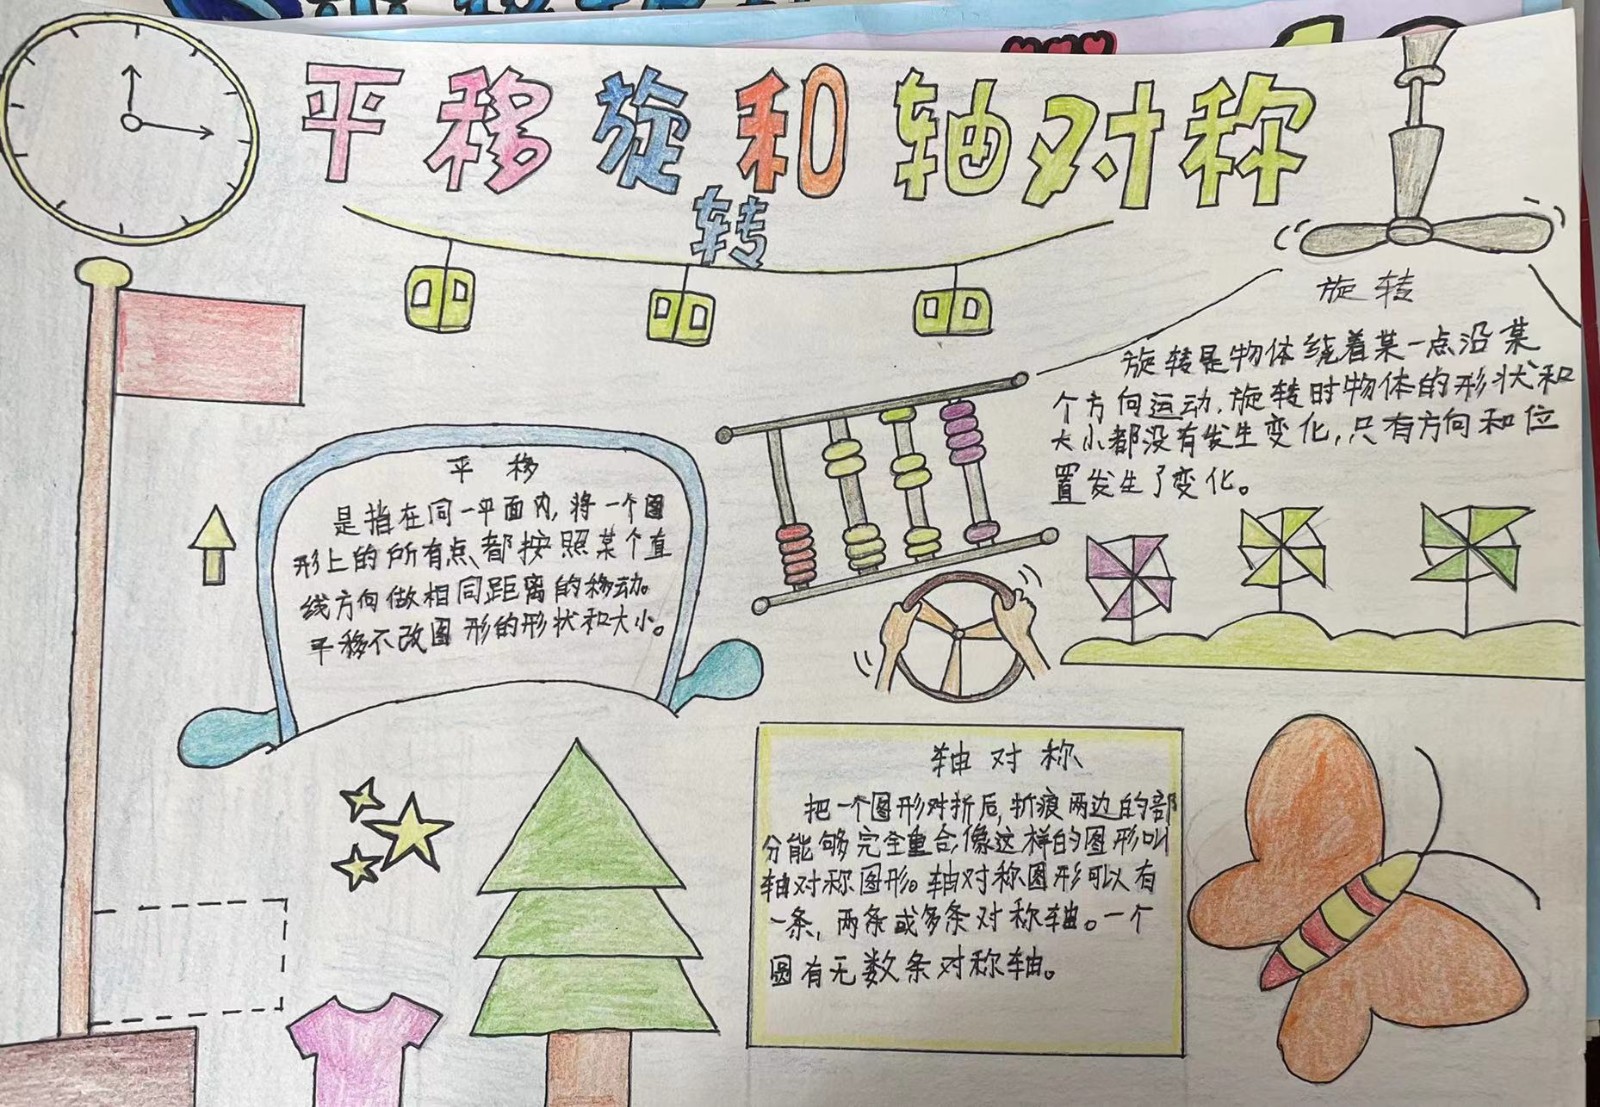 平移旋转和轴对称
旋转
旋转是物体绕着某一点沿某
个方向运动,旋转时物体的形状和
大小都没有发生变化,只有方向和位
置发生了变化。
平移
是指在同一平面内,将一个图
形上的所有点、都按照某个直
线方向做相同距离的移动。
平移不改图形的形状和大小。
轴对称
把一个图形对折后,折痕两边的部
分能够完全重合,像这样的图形叫
轴对称图形。轴对称图形可以有
一条,两条或多条对称轴。一个
圆有无数条对称轴。